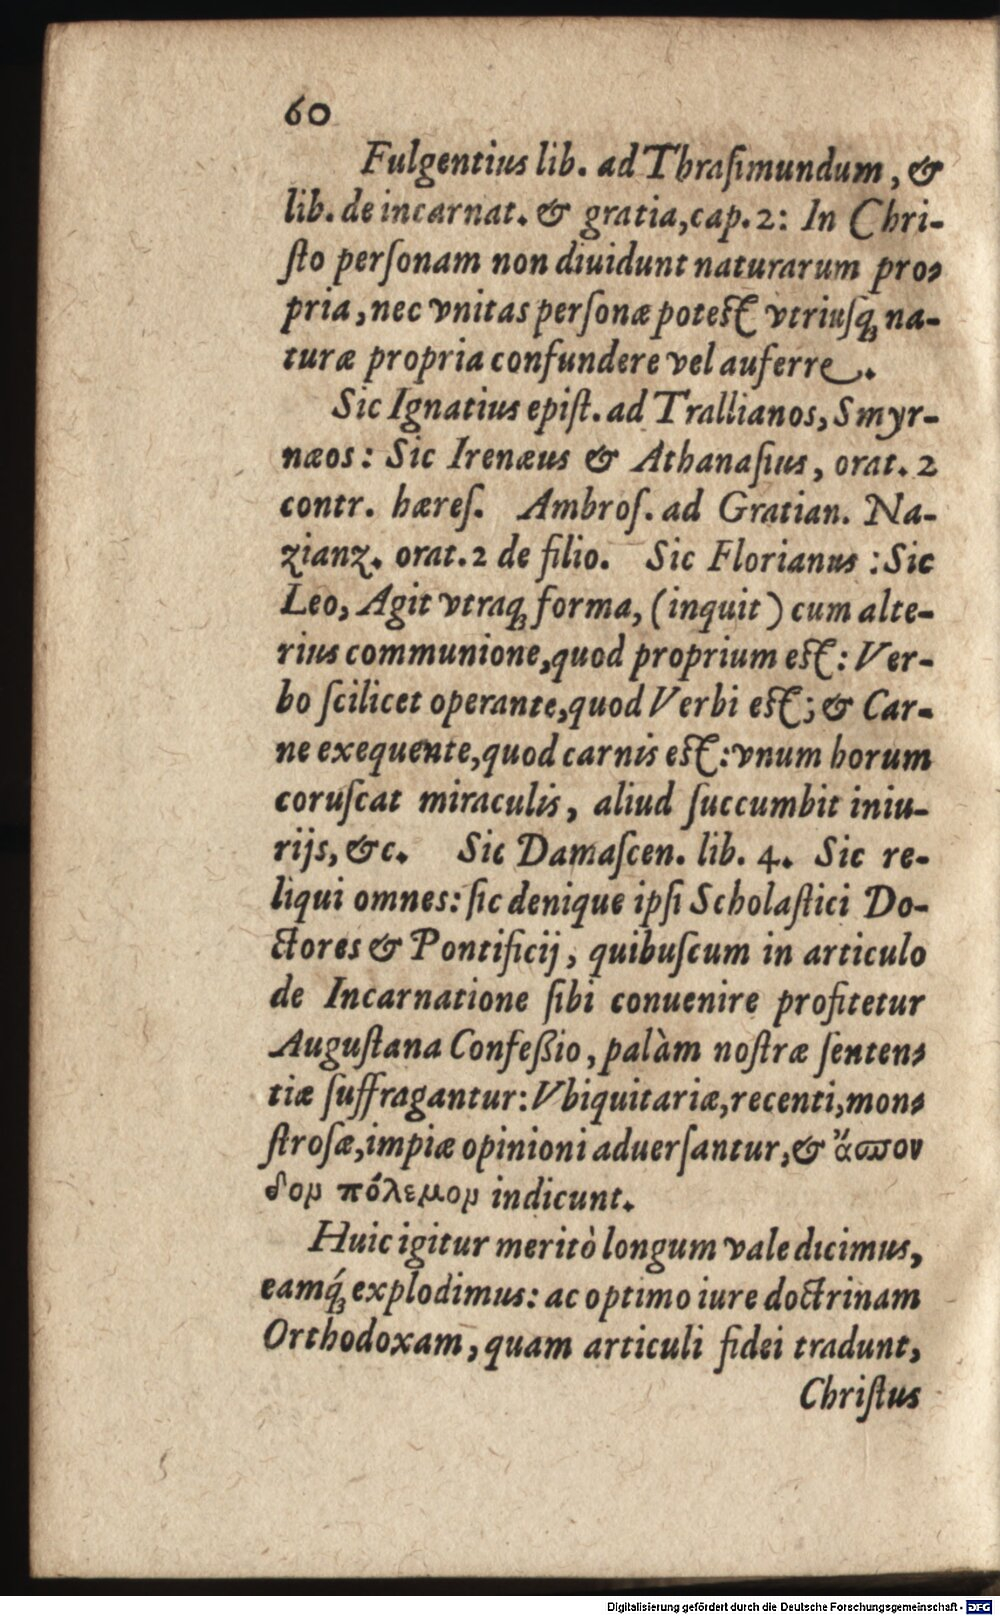 60
Fulgentius lib. ad Thraſimundum, &
lib. de incarnat. & gratia, cap. 2: In Chri-
ſto perſonam non diuidunt naturarum pro-
pria, nec vnitas perſonæ poteſt vtriuſq; na-
turæ propria confundere vel auferre.
Sic Ignatius epiſt. ad Trallianos, Smyr-
næos: Sic Irenæus & Athanaſius, orat. 2
contr. hæreſ. Ambroſ. ad Gratian. Na-
zianz. orat. 2 de filio. Sic Florianus: Sic
Leo, Agit vtraq; forma, (inquit) cum alte-
rius communione, quod proprium eſt: Ver-
bo ſcilicet operante, quod Verbi eſt; & Car-
ne exequente, quod carnis eſt: vnum horum
coruſcat miraculis, aliud ſuccumbit iniu-
rijs, &c. Sic Damaſcen. lib. 4. Sic re-
liqui omnes: ſic denique ipſi Scholaſtici Do-
ctores & Pontificij, quibuſcum in articulo
de Incarnatione ſibi conuenire profitetur
Auguſtana Confeßio, palàm noſtræ ſenten-
tiæ ſuffragantur: Vbiquitariæ, recenti, mon-
ſtroſæ, impiæ opinioni aduerſantur, & ἄσπον
δον πόλεμον indicunt.
Huic igitur meritò longum vale dicimus,
eamq́; explodimus: ac optimo iure doctrinam
Orthodoxam, quam articuli fidei tradunt,
Chriſtus
Digitalisierung gefördert durch die Deutsche Forschungsgemeinschaft - DFG